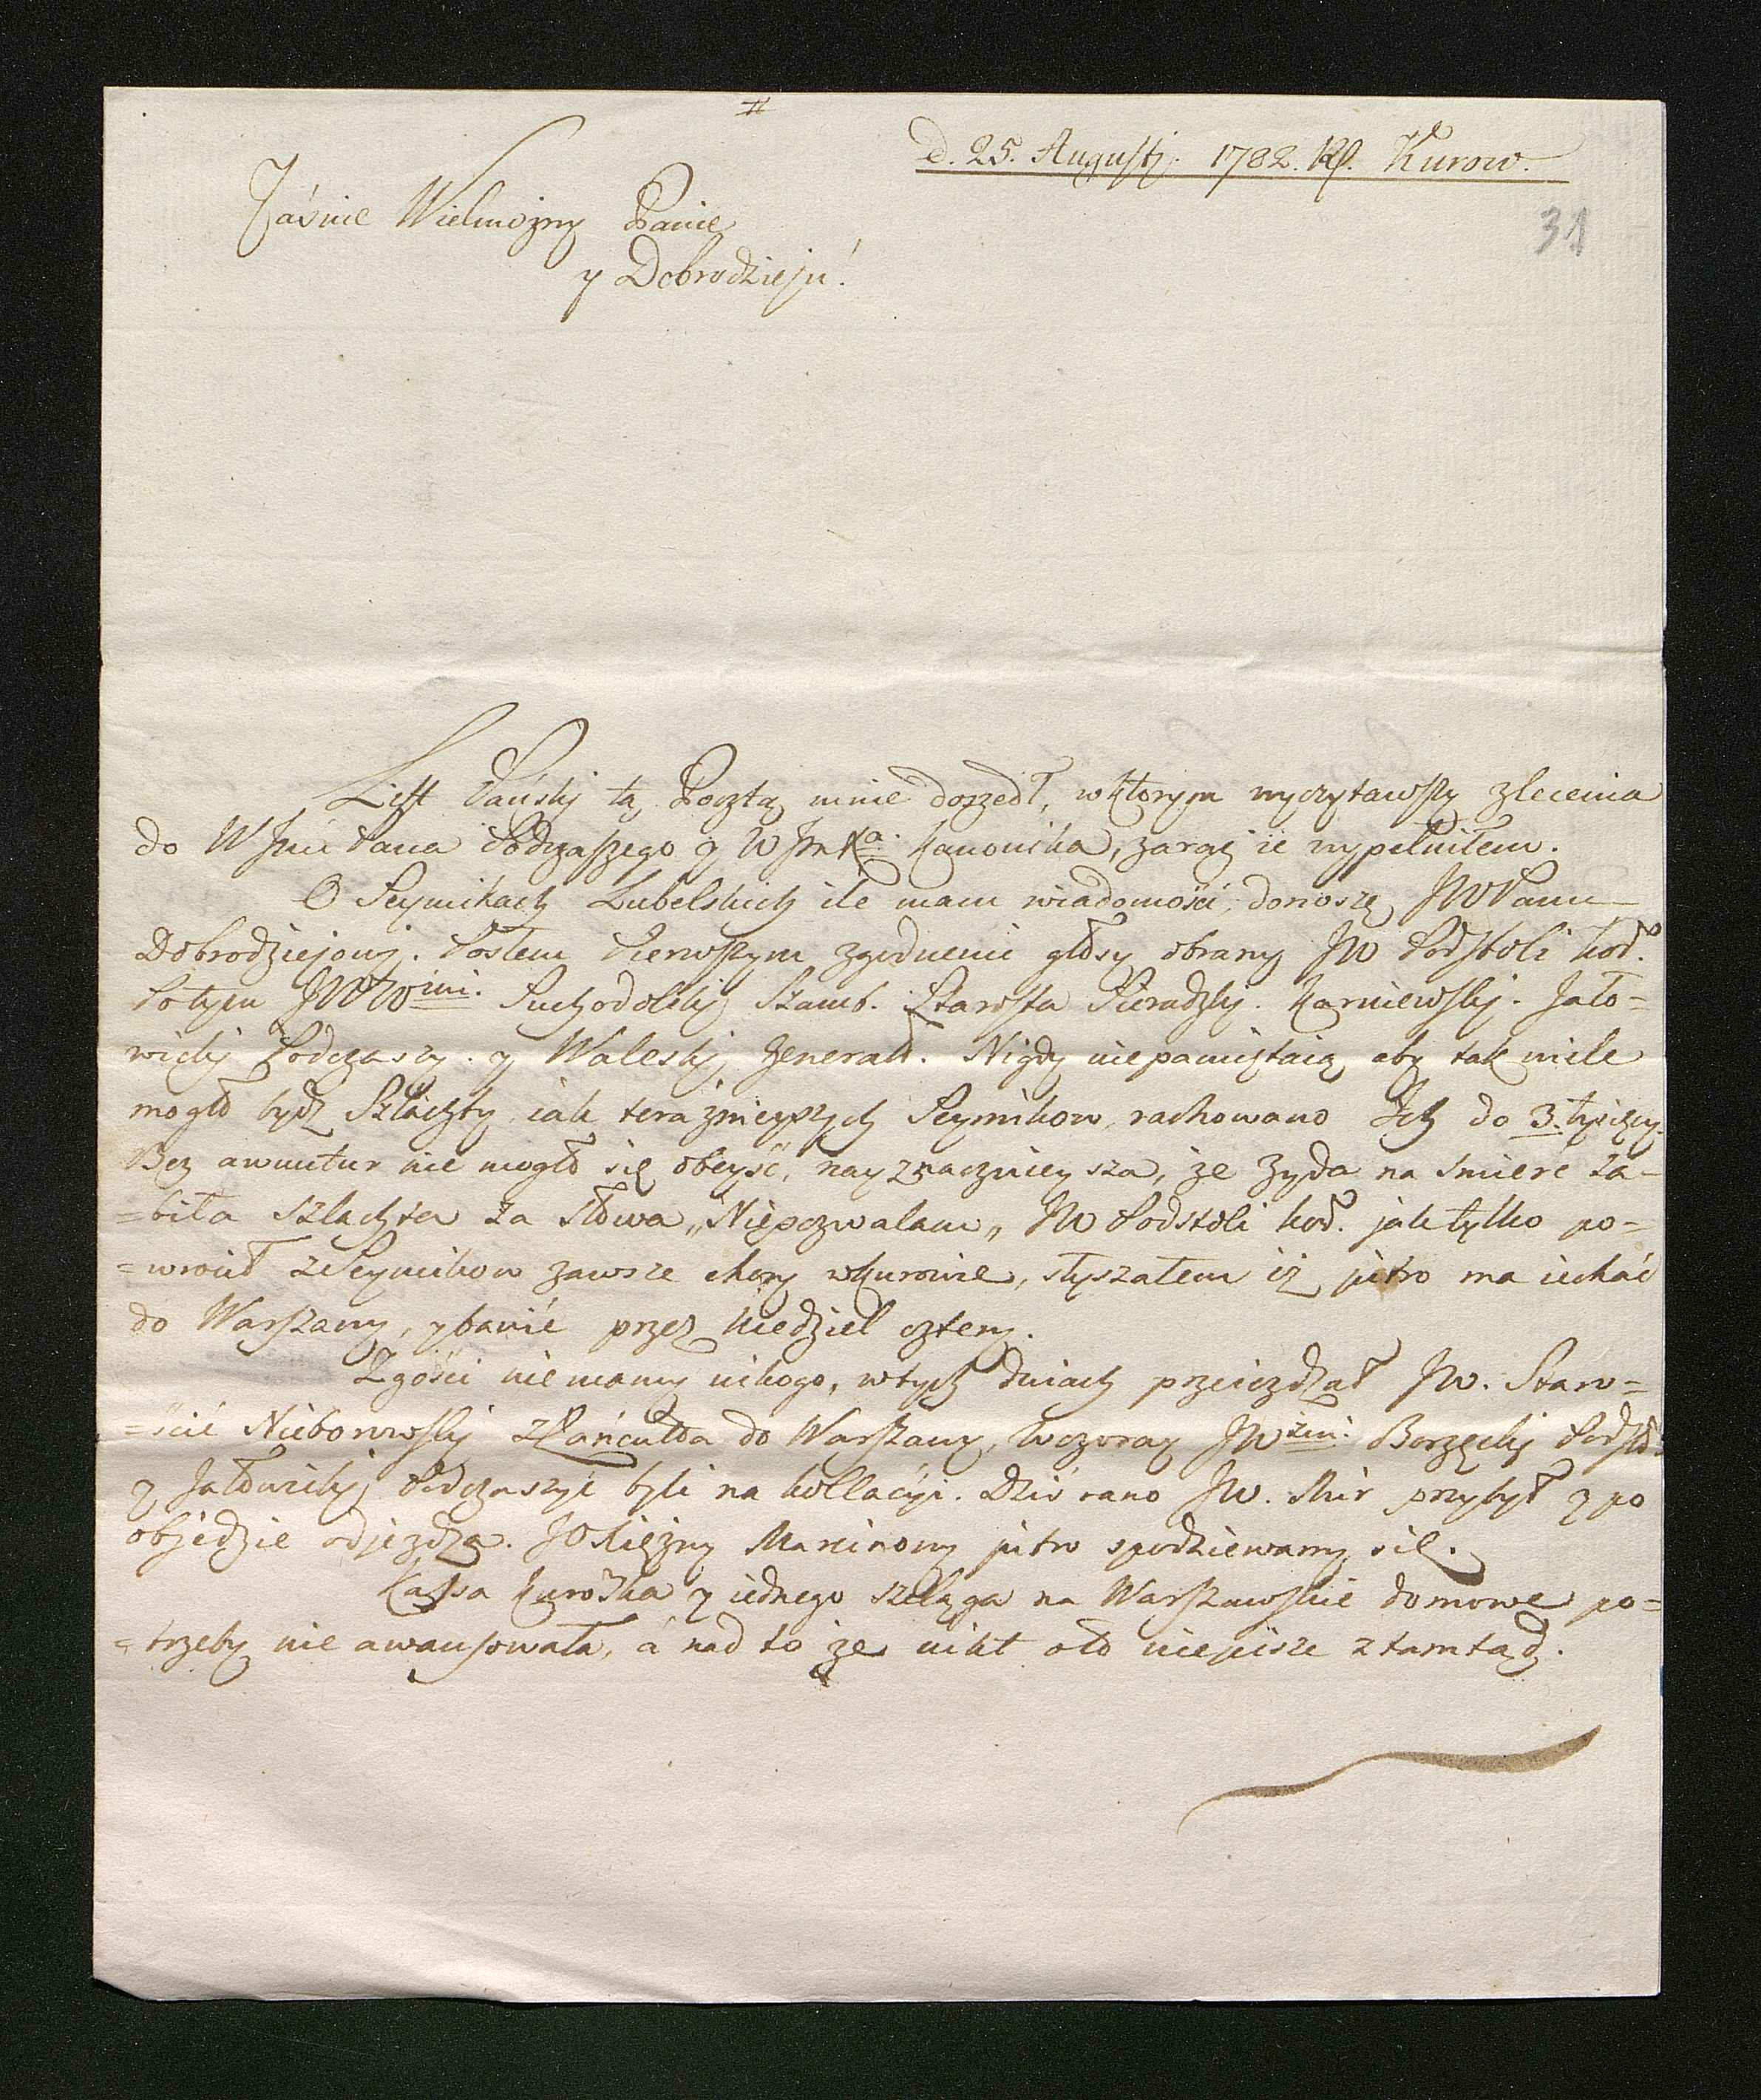 #
d. 25. Augusti. 1782. Kurow.
31
Jaśnie Wielmożny Panie
y Dobrodzieju!
List Pański tą Pocztą mnie doszedł, w ktorym wyczytawszy zlecenia
do WJmci Pana Podczaszego y WJm Xa. Kanonika, zaraz ie wypełniłem.
O Seymikach Lubelskich ile mam wiadomości, donoszę JWPanu
Dobrodziejowi. Posłem Pierwszym zgodnemi głosy obrany JW Podstoli kor.
Potym JWWmi. Suchodolski Szamb. Starosta Sieradzki. Karniewski. Jało=
wicki Podczaszy. y Waleski Generał. Nigdy niepamiętaią aby tak wiele
mogło bydź Szlachty iak teraznieyszych Seymikow, rachowano Ich do 3. tysięcy.
Bez awantur nie mogło się obeyść, nayznacznieysza, że Żyda na śmierć za-
=biła szlachta za słowa „Niepozwalam„ JW Podstoli kor. jak tylko po-
=wrócił z Seymikow zawsze chory w Kurowie, słyszałem iż jutro ma iechać
do Warszawy, y bawić przez Niedziel cztery.
Z gości niemamy nikogo, w tych dniach przeiezdżał JW. Staro=
=ście Nieborowski z Łańcuta do Warszawy, wczoray JWzni. Borzęcki Podsto.
y Jałowicki Podczaszyc byli na kollacyi. Dziś rano JW. Mir przybył y po
objedzie odjezdża. JO Xiężny Marcinowy jutro spodziewamy się.
Kassa Kurowska y iednego szeląga na Warszawskie domowe po=
=trzeby nie awansowała, á nad to że nikt oto niepisze ztamtąd.